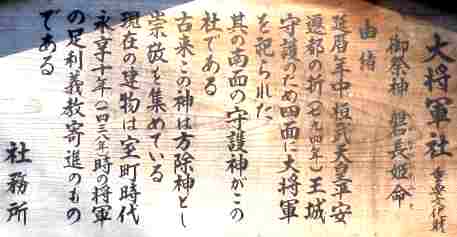 大将軍社 重要文化財
御祭神 磐長姫命
由緒
延暦年中桓武天皇平安
遷都の折(七九四年)王城
守護のため四面に大将軍
を祀られた
其の南面の守護神がこの
社である
古来この神は方除神とし
崇敬を集めている
現在の建物は室町時代
永享十年(一四三八年)時の将軍
の足利義教寄進のもの
である
社務所